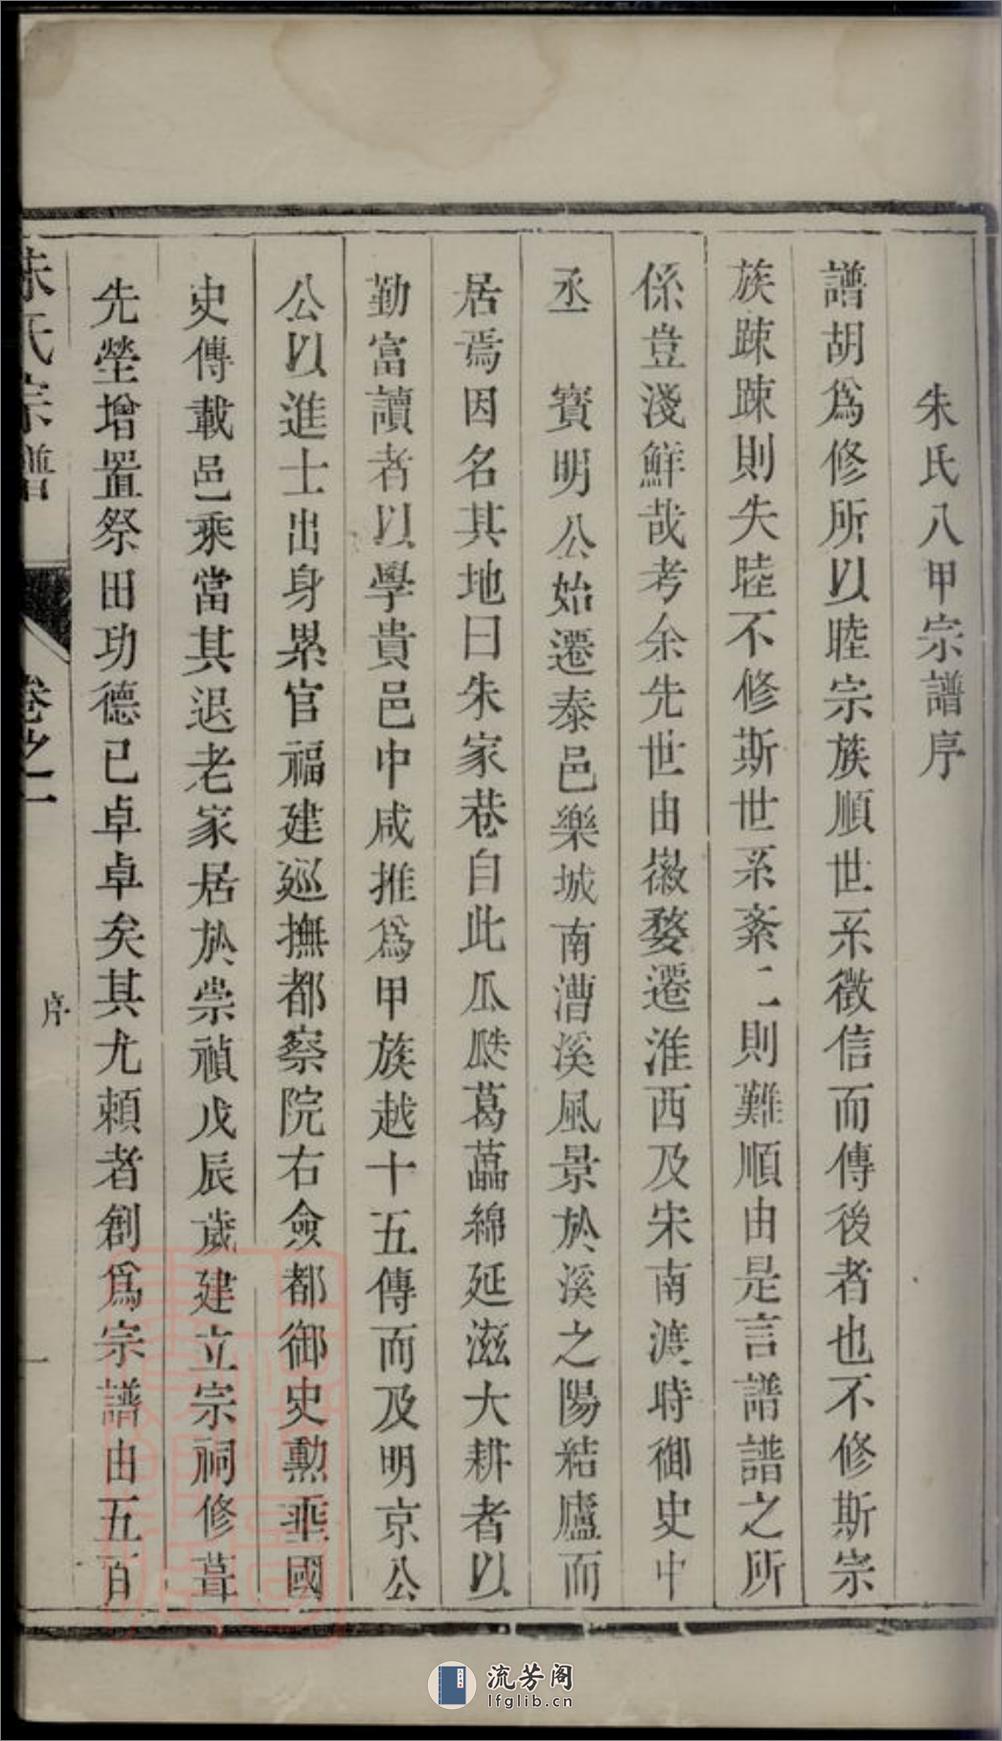 朱氏八甲宗譜序
譜胡爲修所以睦宗族順世系徵信而傳後者也不修斯宗
族踈踈則失睦不修斯世系紊二則難順由是言譜譜之所
係豈淺鮮哉考余先世由徽婺遷淮西及宋南渡時御史中
丞　寳明公始遷泰邑樂城南漕溪風景於溪之陽結廬而
居焉因名其地曰朱家巷自此瓜瓞葛藟綿延滋大耕者以
勤富讀者以學貴邑中咸推爲甲族越十五傳而及明京公
公以進士出身累官福建廵撫都察院右僉都御史勳垂國
史傳載邑乘當其退老家居於崇禎戊辰歲建立宗祠修葺
先塋增置祭田功德已卓卓矣其尤賴者創爲宗譜由五百
朱氏宗譜
卷之一
序
一
流芳阁
lfglib.cn